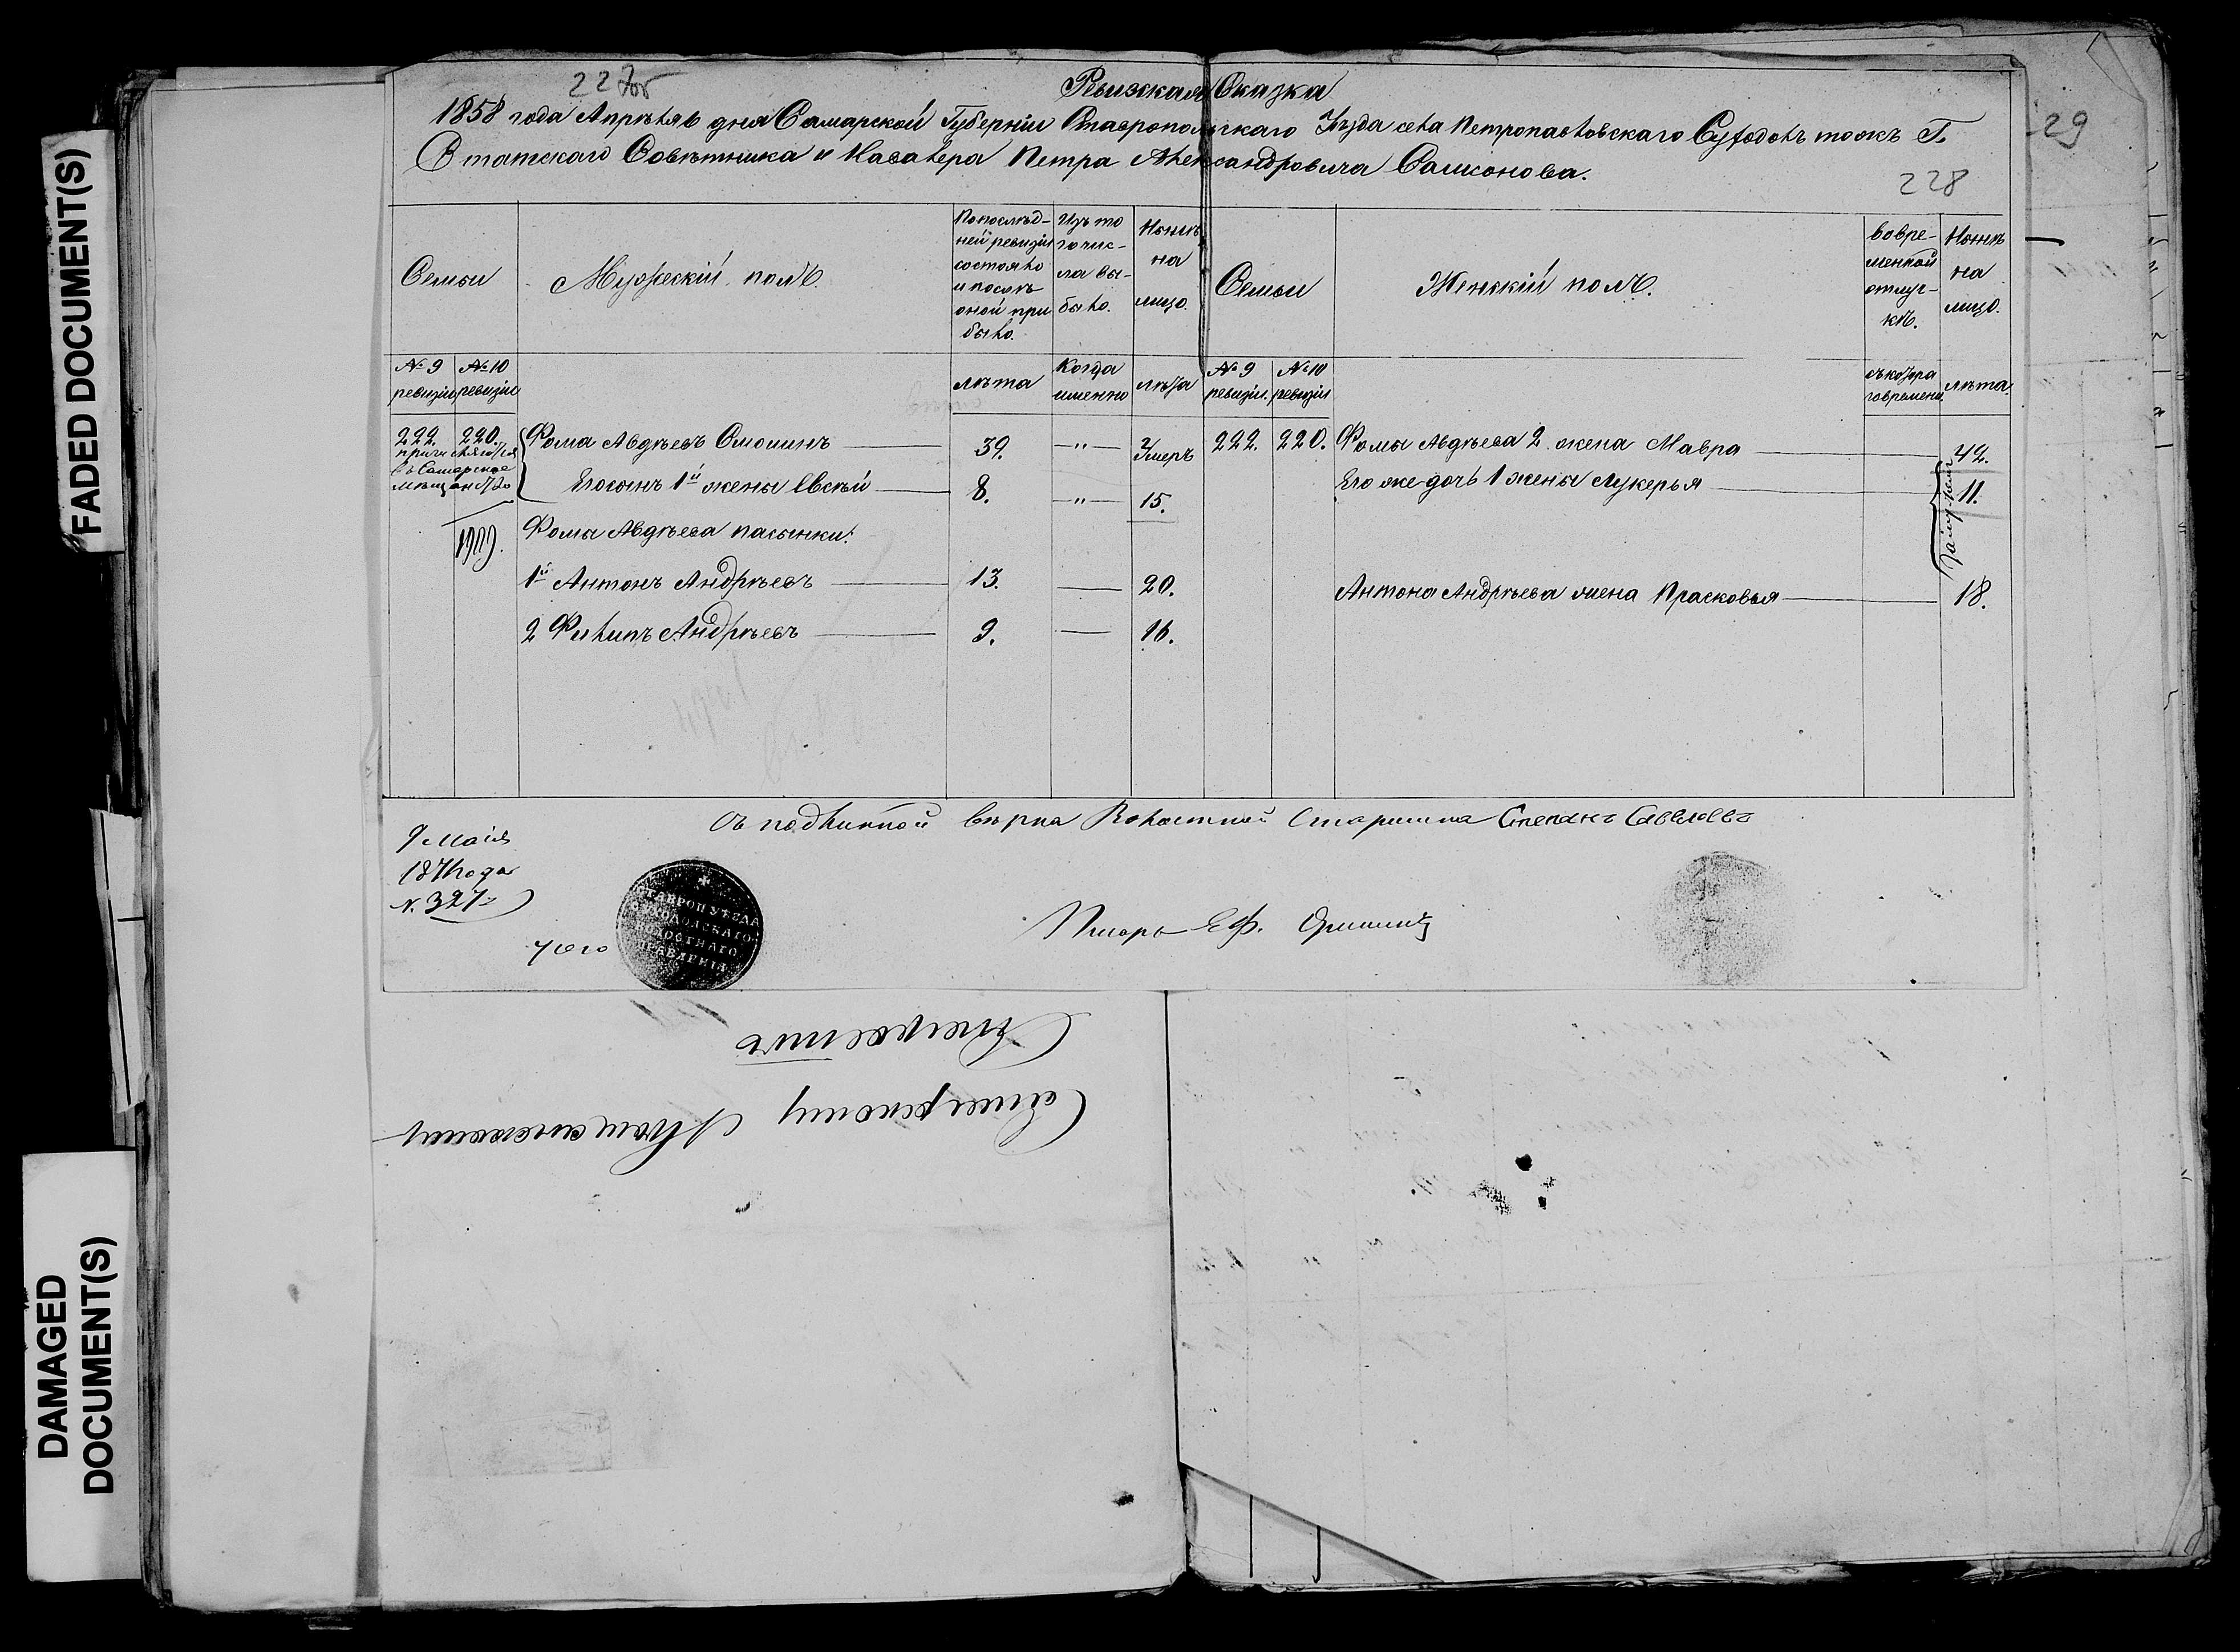 FADED DOCUMENT(S)
DAMAGED
DOCUMENT(S)
227об
29
228
Ревизская Сказка
1858 года Апрѣля 6 дня Самарской Губерніи Ставропольскаго Уѣзда села Петропавловскаго Суходолъ тожъ Г.
Статскаго Совѣтника и Кавалера Петра Александровича Самсонова.
Семьи
Мужескій полъ.
По послѣд-
ней ревизіи
состояло
и послѣ
оной при
было.
Изъ то
го чис-
ла вы-
было.
Нынѣ
на
лицо.
Семьи
Женскій полъ.
во вре-
менной
отлуч-
кѣ.
Нынѣ
на
лицо.
№ 9
ревизіи
№ 10
ревизіи
лѣта
Когда
именно
лѣта
№ 9
ревизіи.
№ 10
ревизіи
съ котора
го времени
лѣта.
222. 220. Фома Авдѣевъ 39. —"— Умеръ 222. 220. Фомы Авдѣева 2. жена Мавра 42.
причисляются
въ Самарское
мѣщанство
Его сынъ 1й жены Евсѣй 8. —"— 15. Его же дочь 1 жены Лукерья 11.
Фомы Авдѣева пасынки:
1й Антонъ Андрѣевъ 13. — 20. Антона Андрѣева жена Прасковья 18.
2 Филипъ Андрѣевъ 9. — 16.
Съ подлинной вѣрна Волостной Старшина Степанъ Савельевъ
9 Маія
1871 года
N. 327
СТАВРОП УѢЗДА
СУХОДОЛСКАГО
ВОЛОСТНАГО
ПРАВЛЕНІЯ
Писарь Еф.
Самарскому Мѣщанскому